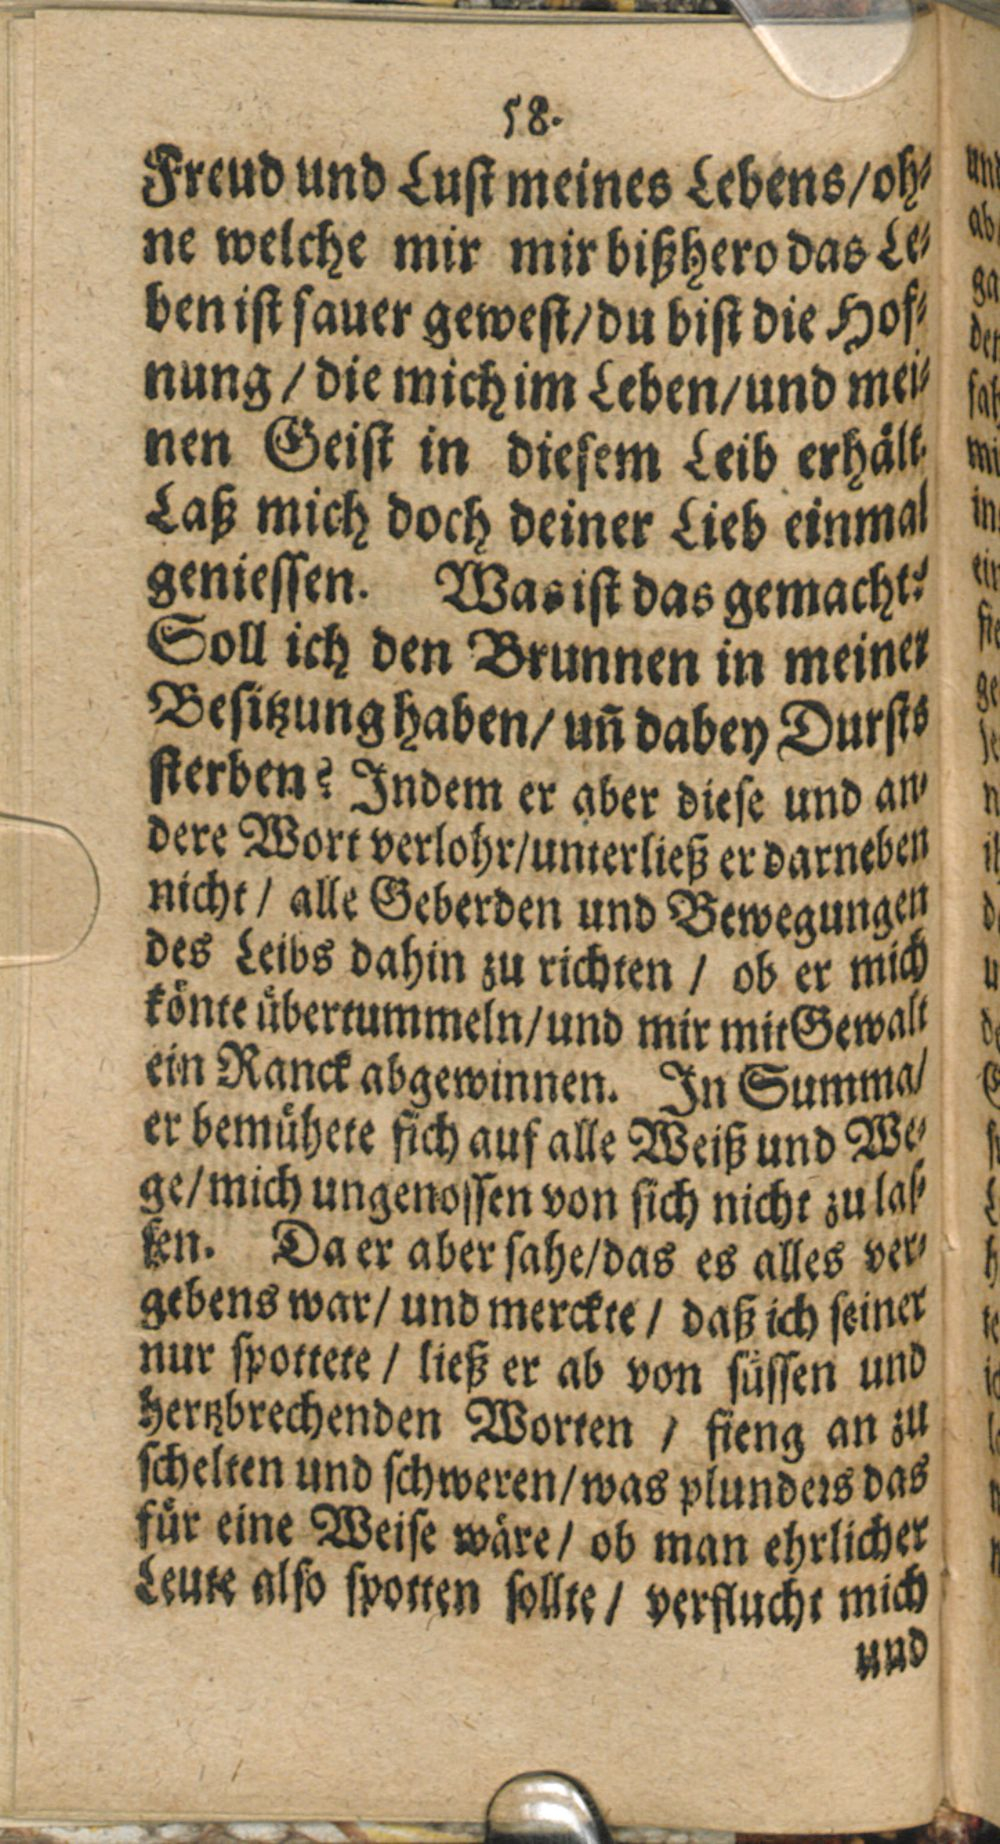 58.
Freud und Lust meines Lebens/oh⸗
ne welche mir mir bißhero das Le⸗
ben ist sauer gewest/du bist die Hof⸗
nung / die mich im Leben/und mei⸗
nen Geist in diesem Leib erhält.
Laß mich doch deiner Lieb einmal
geniessen. Was ist das gemacht?
Soll ich den Brunnen in meiner
Besitzung haben/ uñ dabey Dursts
sterben? Indem er aber diese und an⸗
dere Wort verlohr/unterließ er darneben
nicht / alle Geberden und Bewegungen
des Leibs dahin zu richten / ob er mich
könte übertummeln/und mir mit Gewalt
ein Ranck abgewinnen. In Summa/
er bemühete sich auf alle Weiß und We⸗
ge/mich ungenossen von sich nicht zu las⸗
sen. Da er aber sahe/das es alles ver⸗
gebens war/ und merckte / daß ich seiner
nur spottete / ließ er ab von süssen und
hertzbrechenden Worten / fieng an zu
schelten und schweren/was plunders das
für eine Weise wäre/ ob man ehrlicher
Leute also spotten sollte / verflucht mich
und